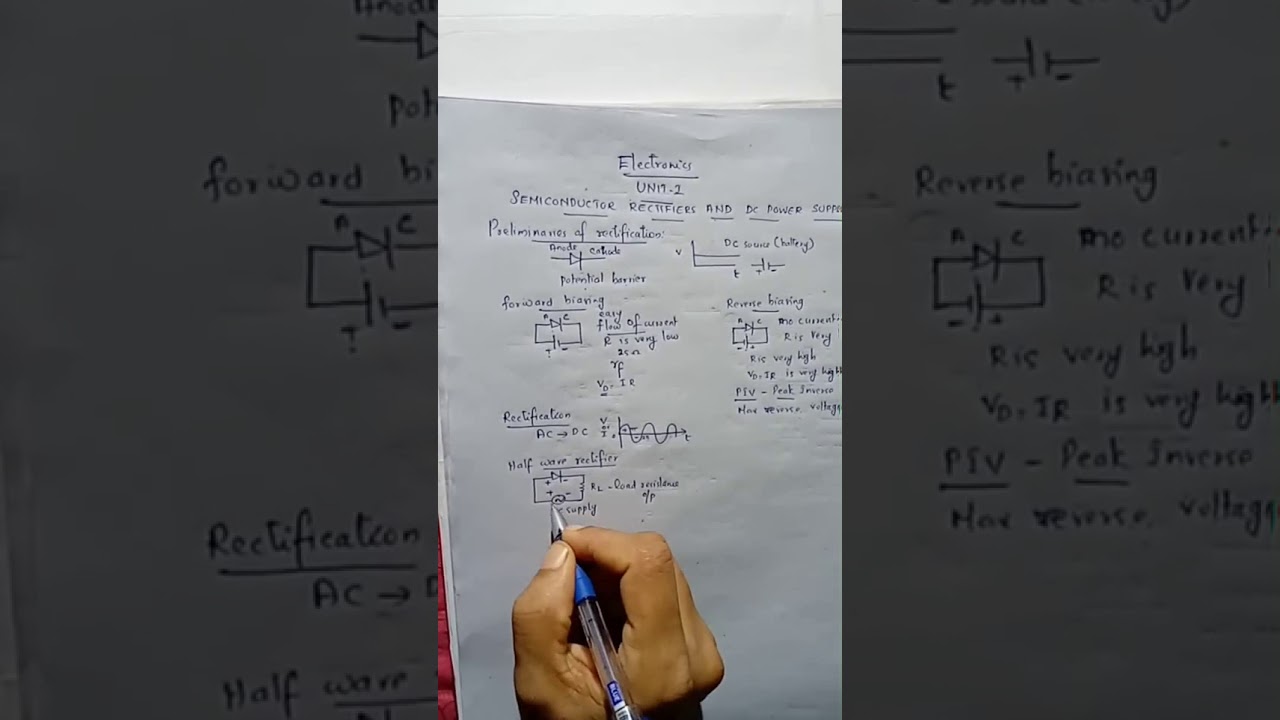 Electronics
UNIT-2
SEMICONDUCTOR RECTIFIERS AND DC POWER SUPPL
Preliminaries of rectification:
Anode Cathode
Potential barrier
V
DC source (battery)
t
+ -
forward biasing
A C
+ -
easy
flow of current
R is very low
25Ω
rf
VD = IR
Reverse biasing
A C
- +
no current
R is very
R is very high
VD = IR is very high
PIV - Peak Inverse
Max reverse voltage
Rectification
AC → DC
V
or
I
t
Half wave rectifier
+ -
+ -
RL - load resistance
o/p
supply